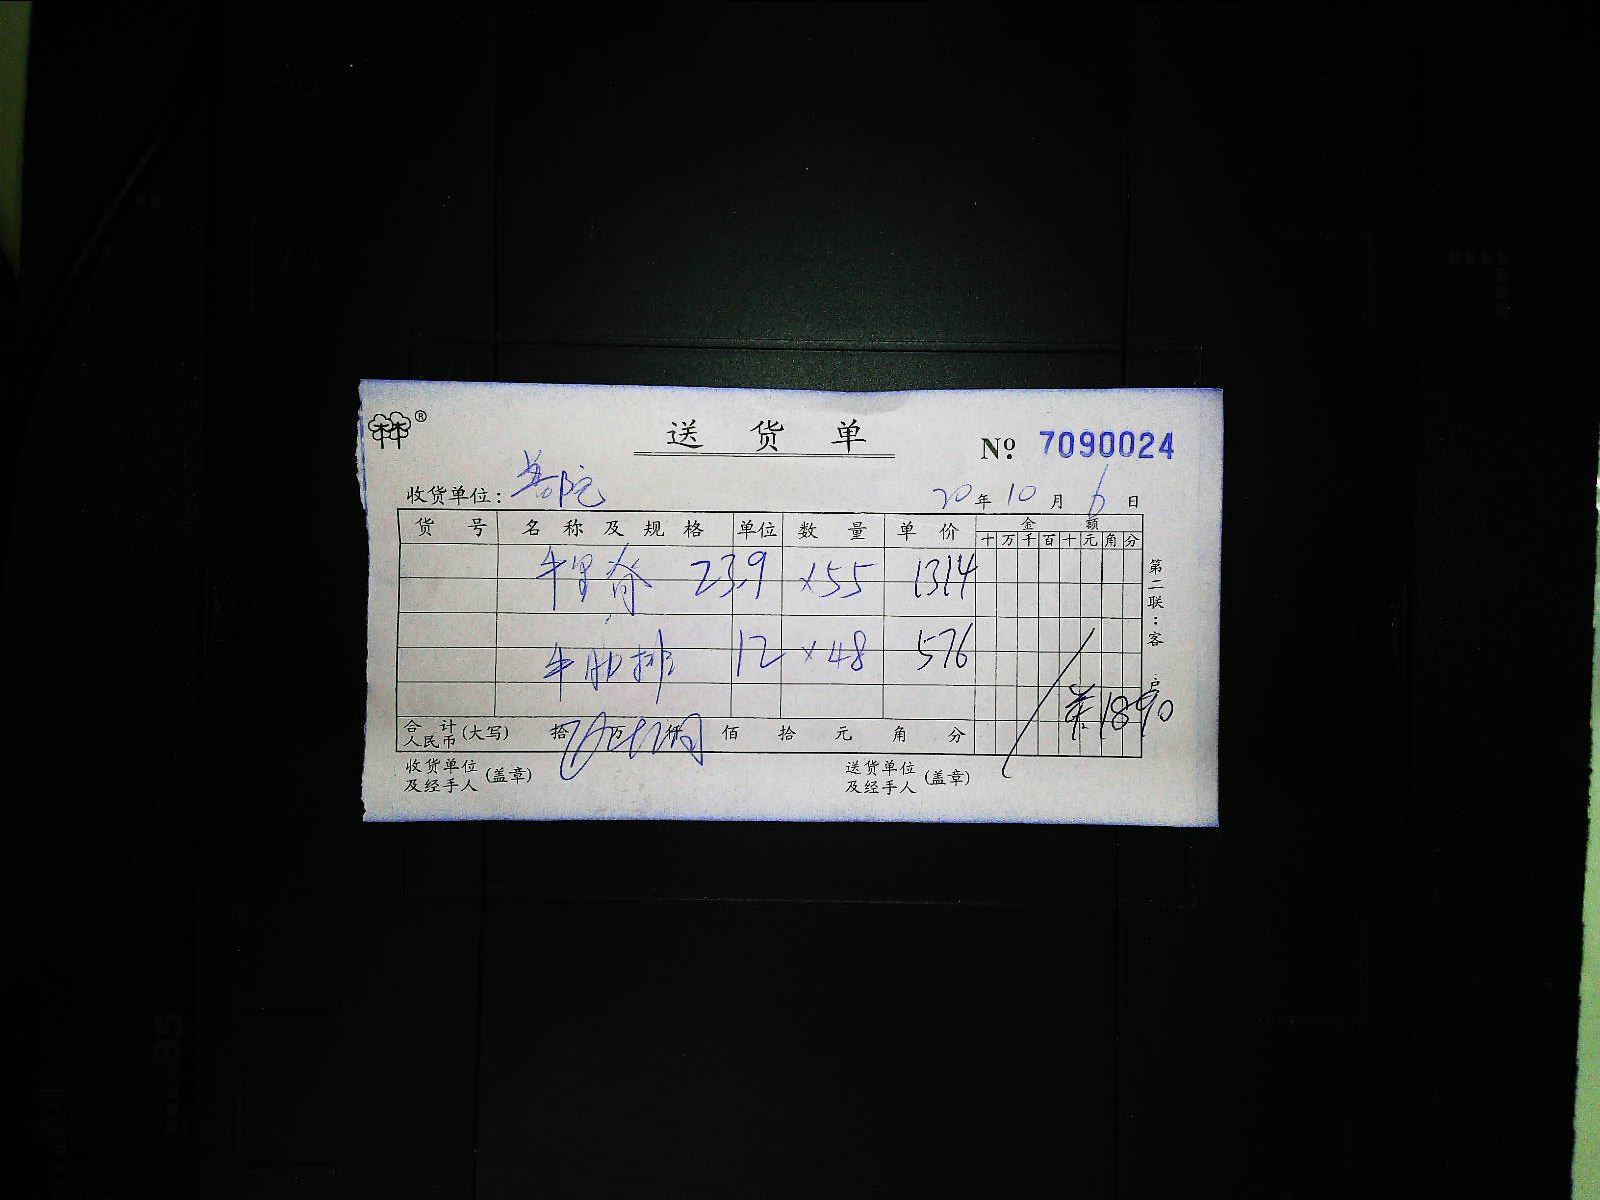 ® 送货单 № 7090024
收货单位: 普陀 20年10月6日
货号 名称及规格 单位 数量 单价 金额
十万千百十元角分
牛里脊 23.9 ×55 1314
牛肋排 12 ×48 576
共:1890
合计人民币(大写) 拾 万 仟 佰 拾 元 角 分
收货单位及经手人(盖章) 送货单位及经手人(盖章)
第二联:客户